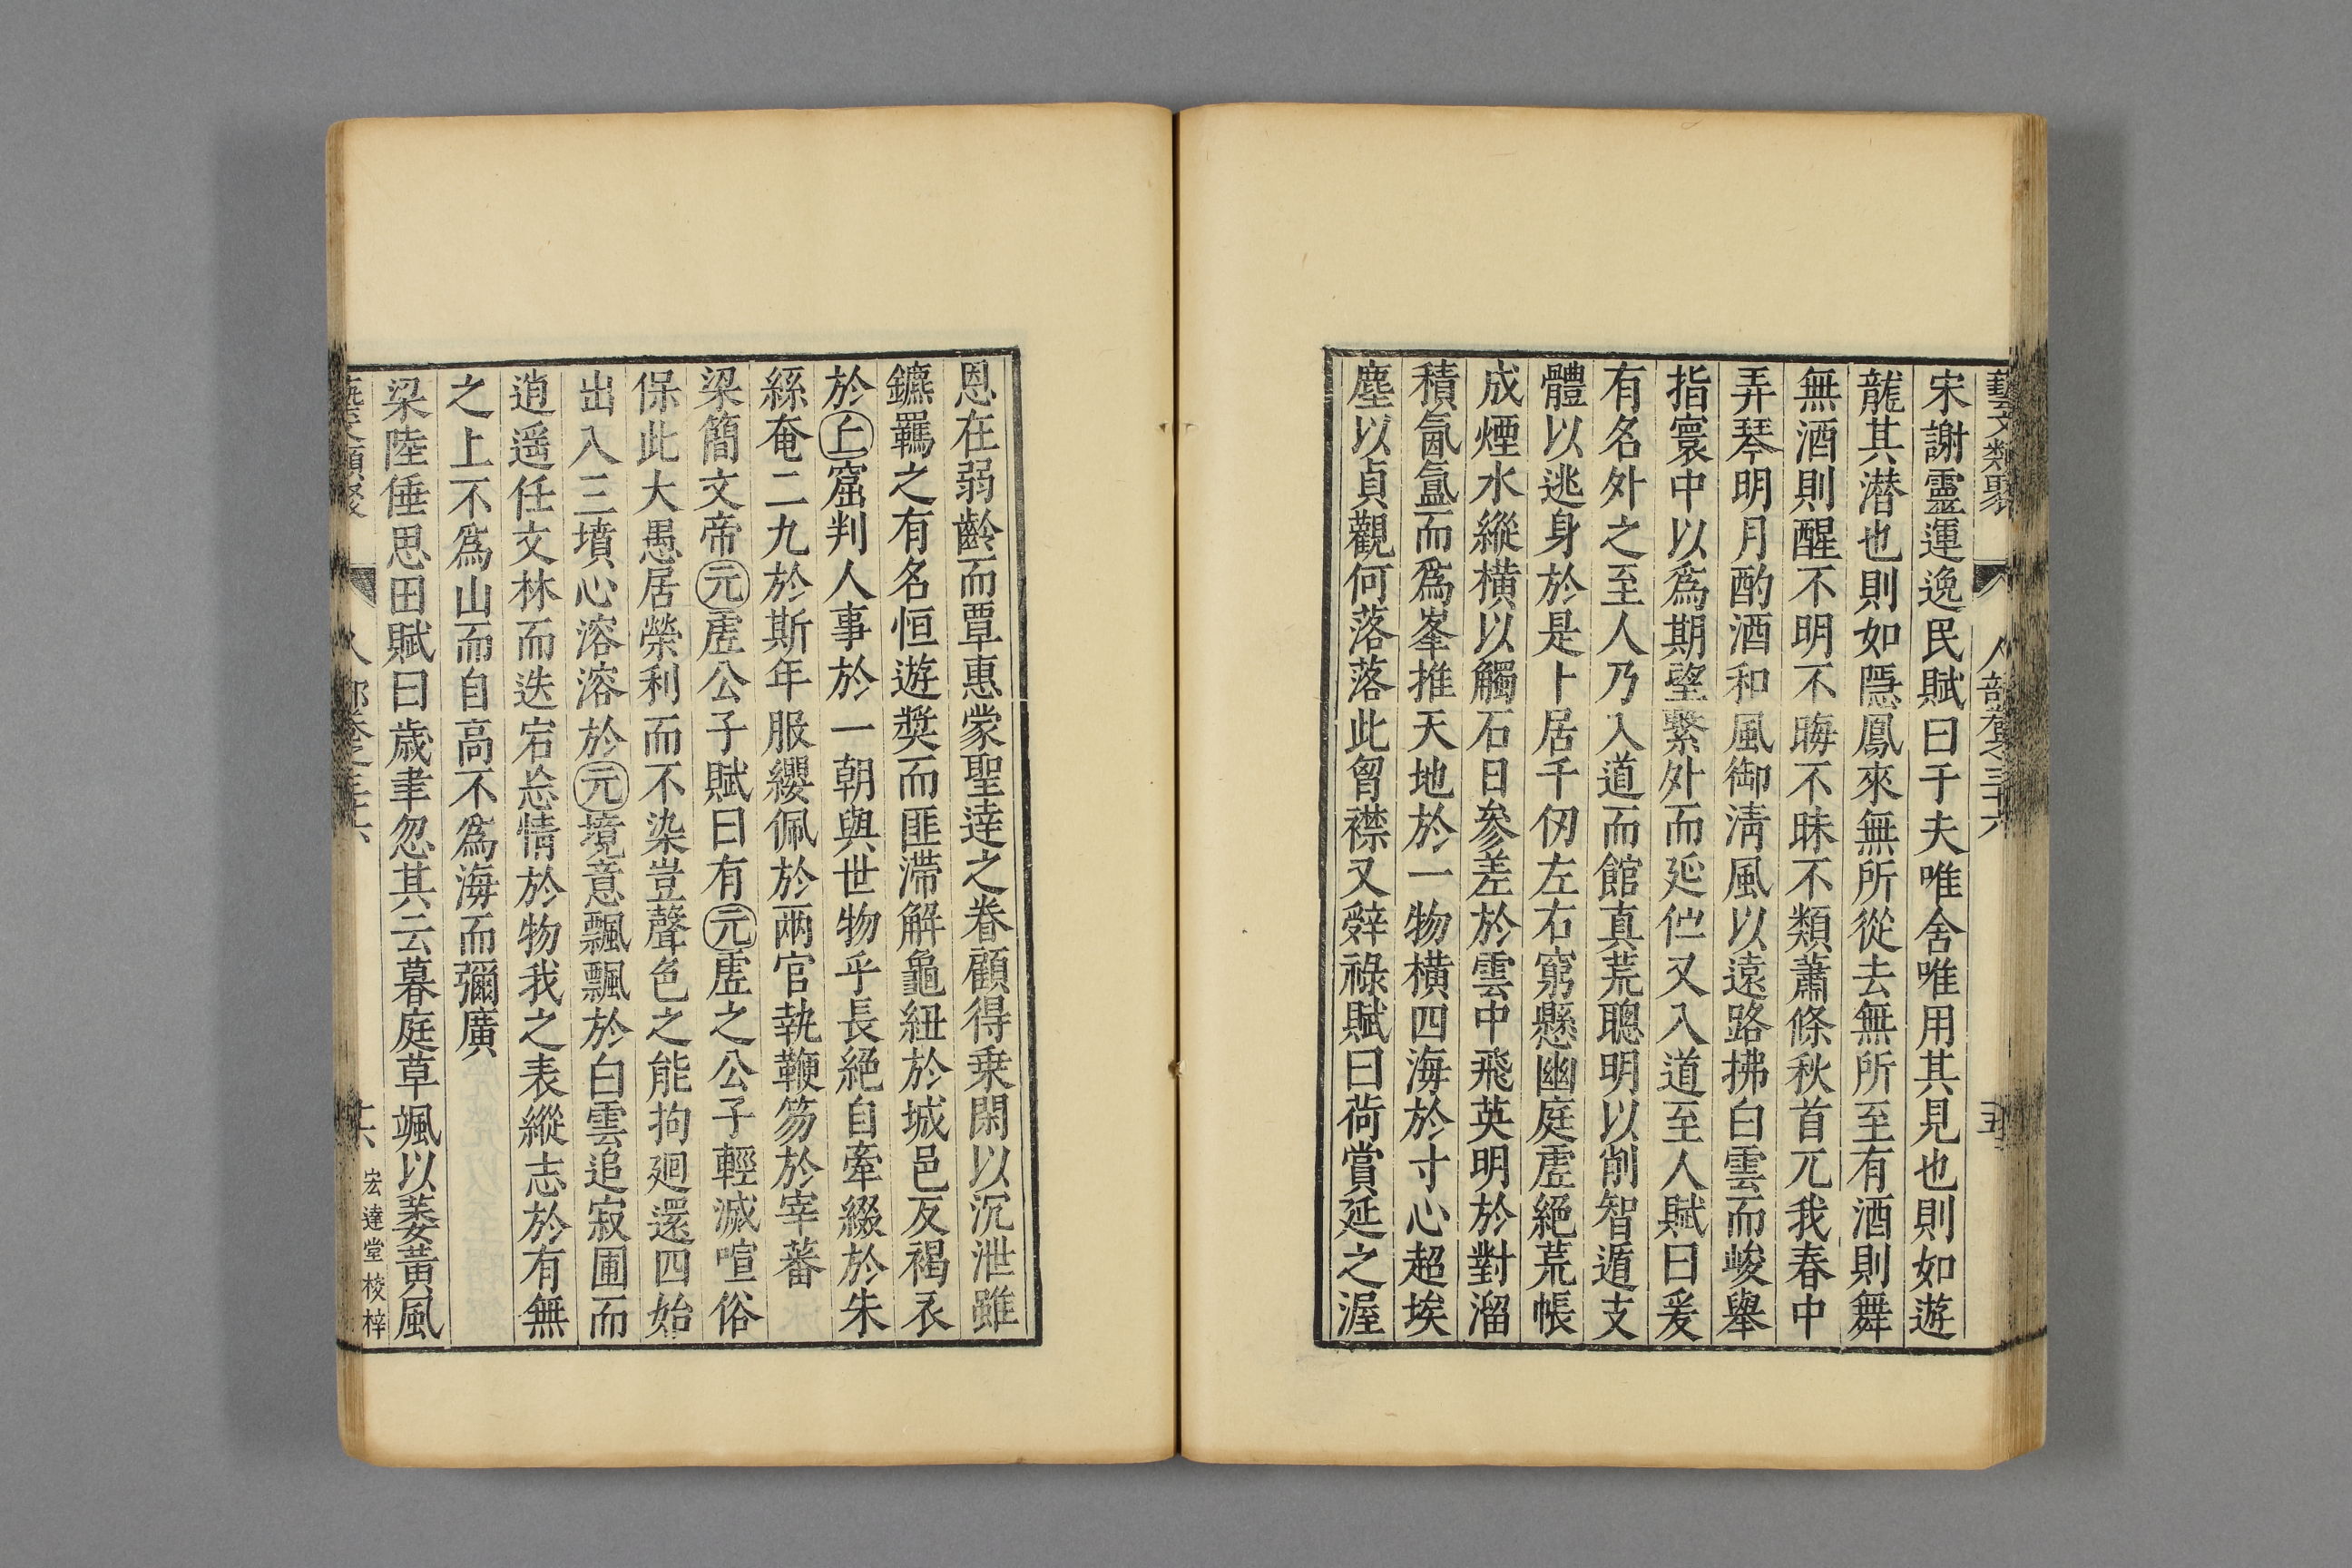 藝文類聚 人部卷之三十六 十五
宋謝靈運逸民賦曰于夫唯舍唯用其見也則如遊
龍其潜也則如隱鳳來無所從去無所至有酒則舞
無酒則醒不明不晦不昧不類蕭條秋首兀我春中
弄琴明月酌酒和風御淸風以遠路拂白雲而峻舉
指寰中以爲期望繫外而延伫又入道至人賦曰爰
有名外之至人乃入道而館真荒聰明以削智遁支
體以逃身於是卜居千仞左右窮懸幽庭虗絕荒帳
成煙水縱橫以觸石日參差於雲中飛英明於對溜
積氤氲而爲峯推天地於一物橫四海於寸心超埃
塵以貞觀何落落此胷襟又辤祿賦曰荷賞延之渥
恩在弱齡而覃惠蒙聖達之眷顧得乗閑以沉泄雖
鑣羈之有名恒遊奬而匪滯解龜紐於城邑反褐衣
於丘窟判人事於一朝與世物乎長絕自牽綴於朱
絲奄二九於斯年服纓佩於兩官執鞭笏於宰蕃
梁簡文帝元虗公子賦曰有元虗之公子輕減喧俗
保此大愚居榮利而不染豈聲色之能拘廻還四始
出入三墳心溶溶於元境意飄飄於白雲追寂圃而
逍遥任文林而迭宕忩情於物我之表縱志於有無
之上不爲山而自高不爲海而彌廣
梁陸倕思田賦曰歲聿忽其云暮庭草颯以萎黃風
藝文類聚 人部卷之三十六 十六 宏達堂校梓